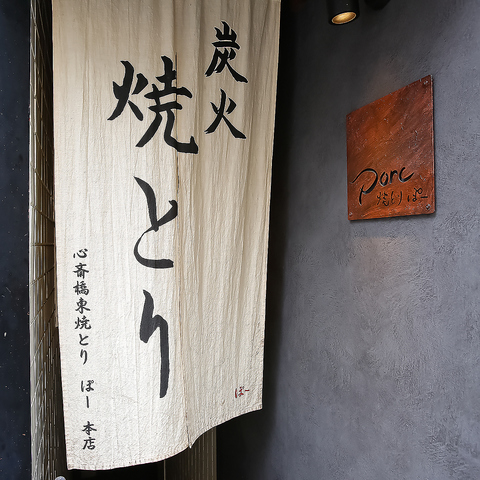 炭火
焼とり
心斎橋東焼とり ぽー 本店
ぽー
Porc
焼とり ぽー